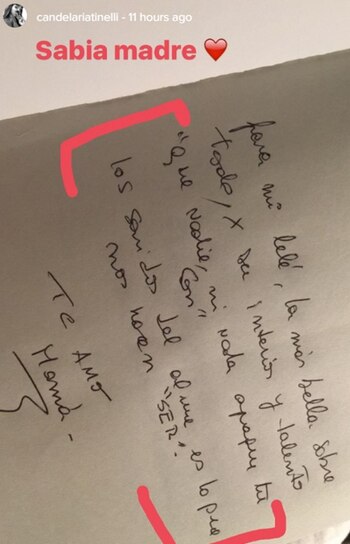 candelariatinelli · 11 hours ago
Sabia madre ❤
para mi Lelé, la más bella sobre
todo, x su interior y talento
"Que nadie, ni nada apaguen tu
los sonidos del alma es lo que
nos hacen "SER".
Te amo
Mamá-